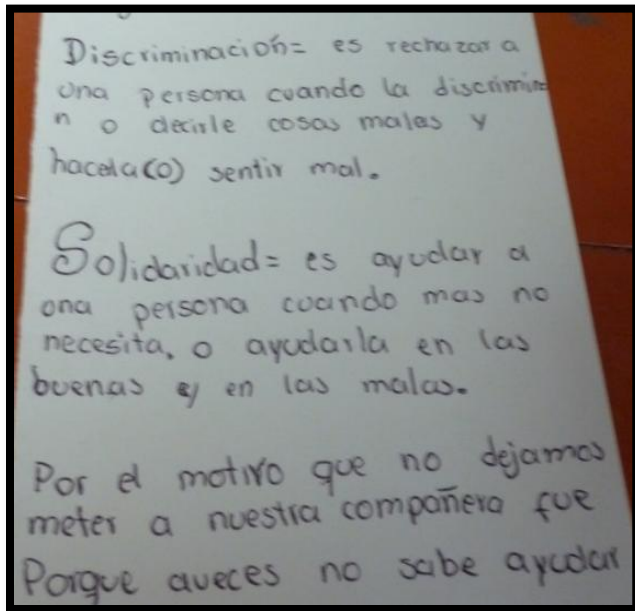 Discriminación= es rechazar a
una persona cuando la discrimina
n o decirle cosas malas y
hacela(o) sentir mal.
Solidaridad= es ayudar a
una persona cuando mas no
necesita, o ayudarla en las
buenas y en las malas.
Por el motivo que no dejamos
meter a nuestra compañera fue
Porque aveces no sabe ayudar